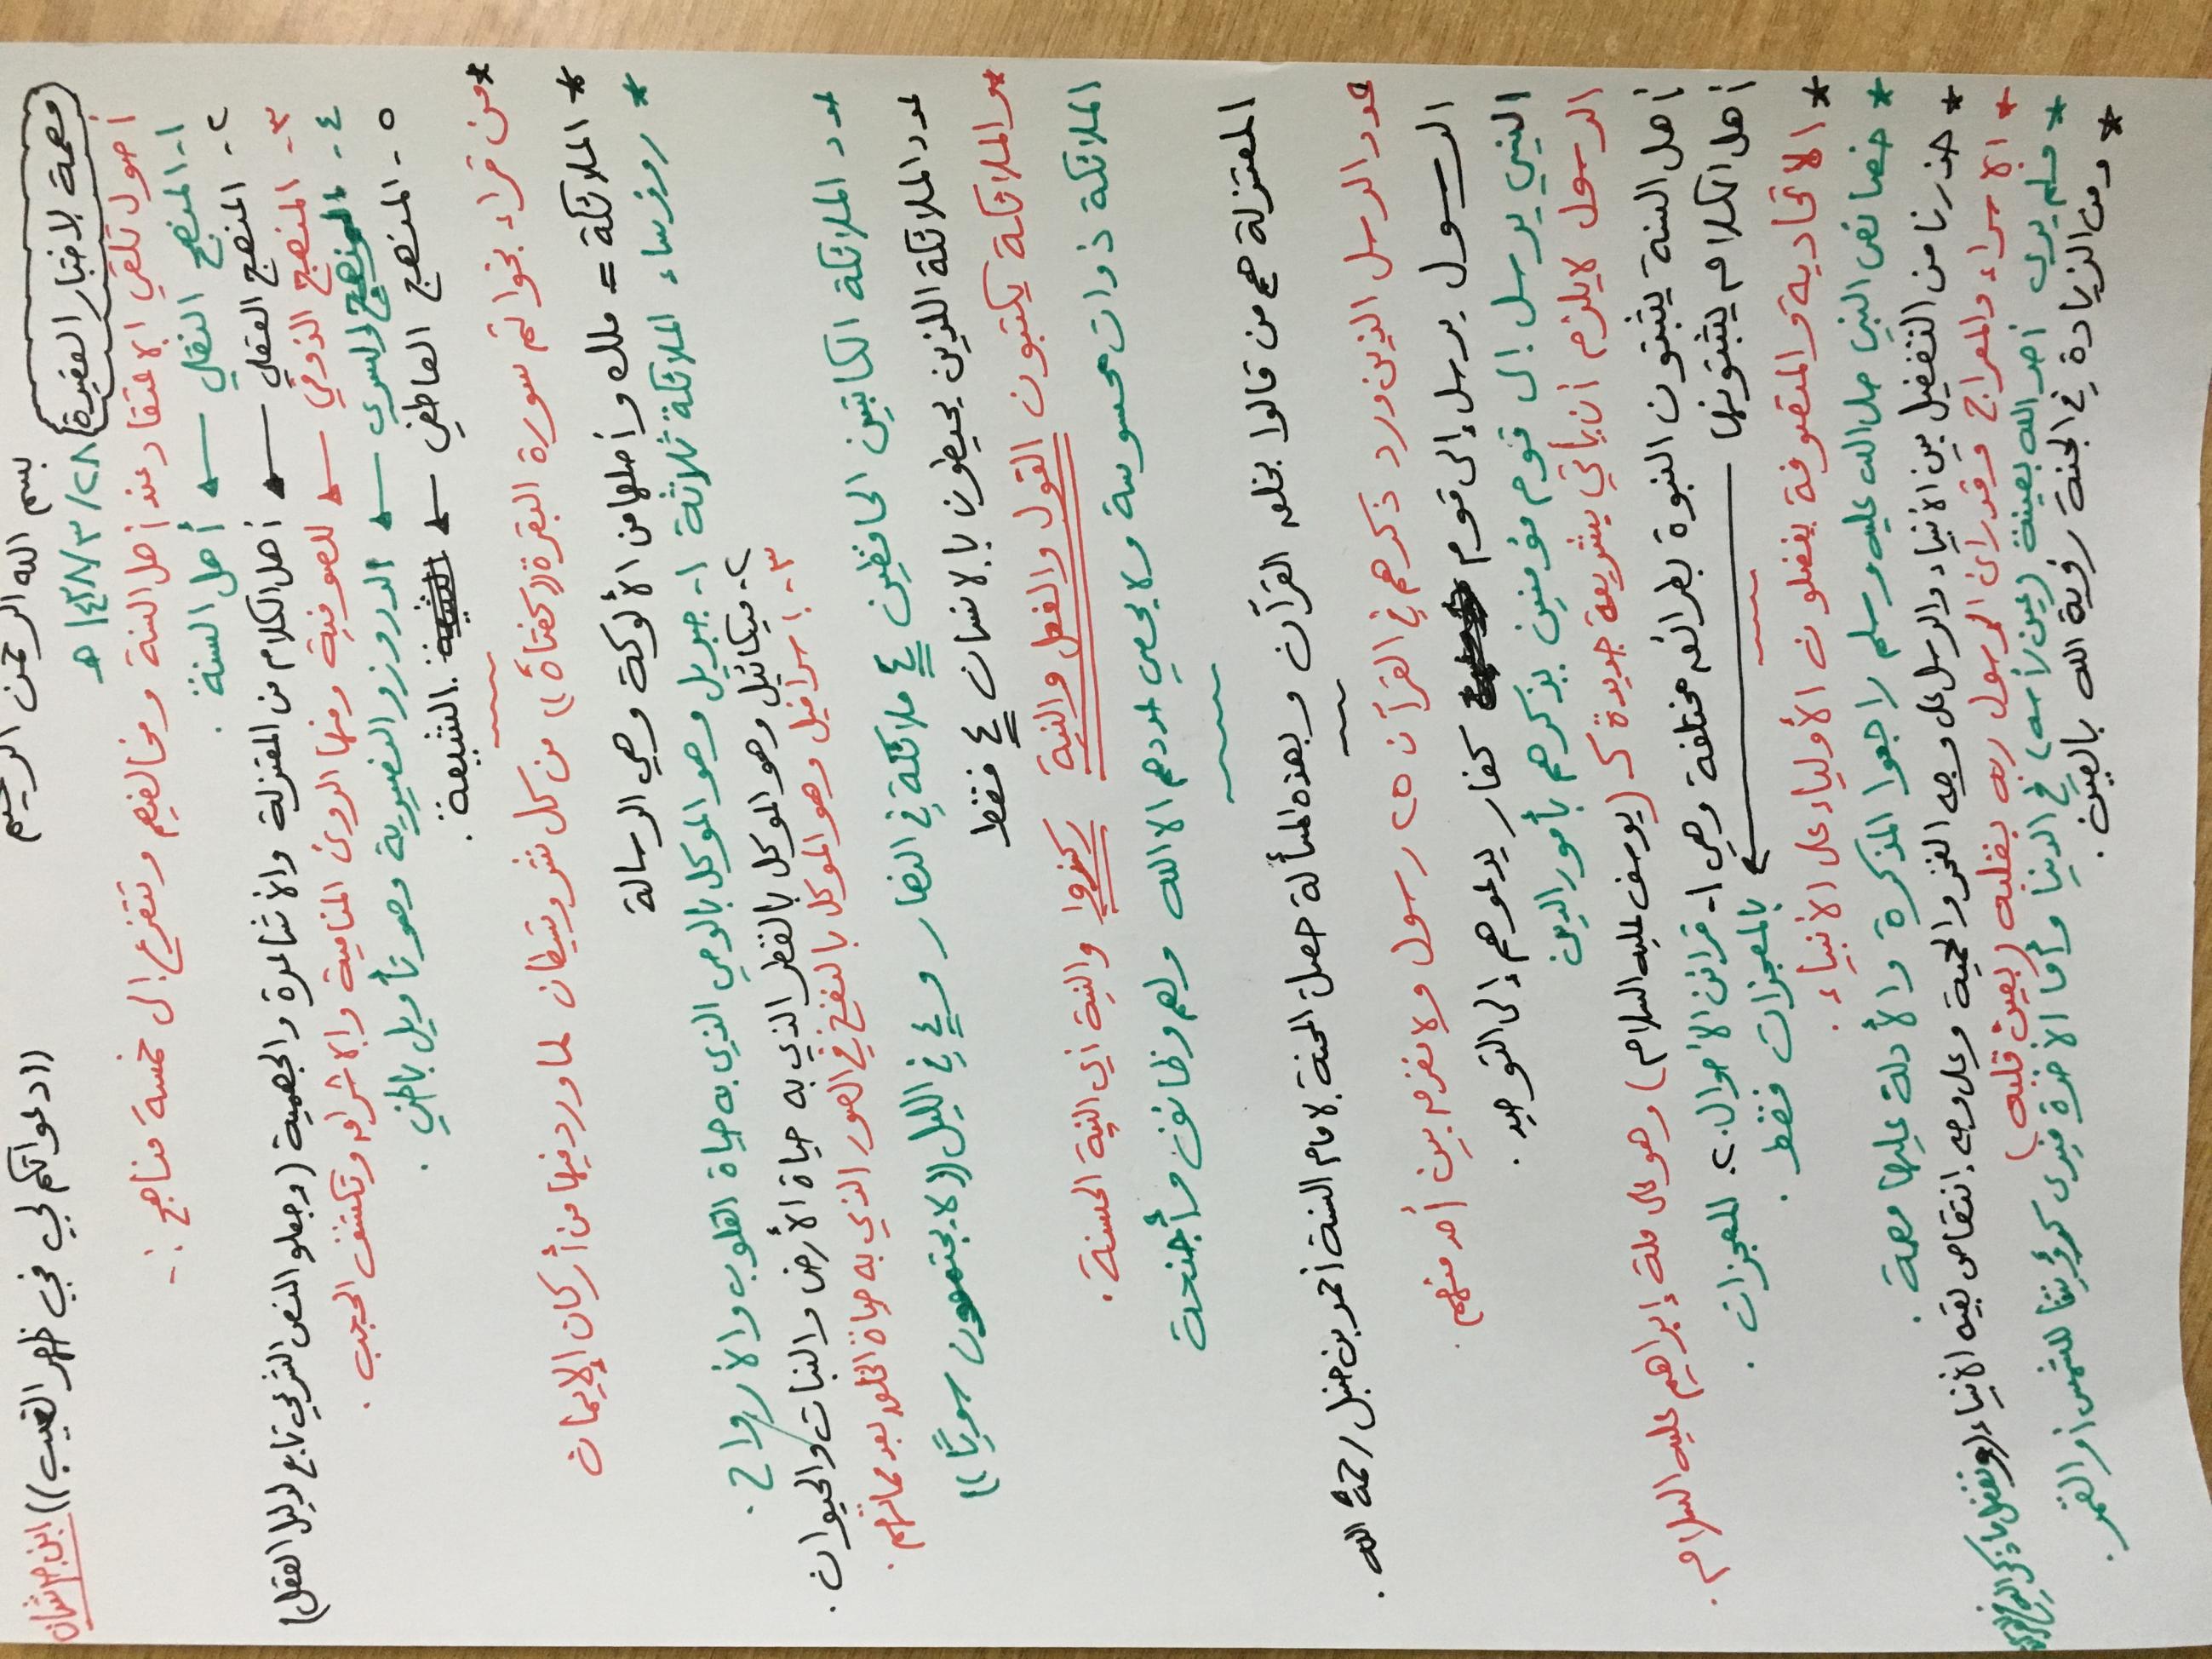 بسم الله الرحمن الرحيم
((دعواتكم لي في ظهر الغيب))
مهمة لاختبار العقيدة
١٤٣٨/٣/٢٨ هـ
أصول تلقي الاعتقاد عند أهل السنة ومخالفيهم وتتفرع إلى خمسة مناهج :-
١- المنهج النقلي ← أهل السنة .
٢- المنهج العقلي ← أهل الكلام من المعتزلة والأشاعرة والجهمية (وجعلوا النص الشرعي تابع لدليل العقل)
٣- المنهج الذوقي ← للصوفية ومنها الرؤى المنامية والإشراق وتكشف الحجب .
٤- المنهج السري ← الدروز والنصيرية وهو تأويل باطني .
٥- المنهج العاطفي ← الشيعة .
* من قراء بخواتم سورة البقرة ((كفتاه)) من كل شر وشيطان لما ورد فيها من أركان الإيمان
* الملائكة = ملك وأصلها من الألوكة وهي الرسالة
* رؤساء الملائكة ثلاثة ١- جبريل وهو الموكل بالوحي الذي به حياة القلوب والأرواح .
٢- ميكائيل وهو الموكل بالقطر الذي به حياة الأرض والنبات والحيوان .
٣- إسرافيل وهو الموكل بالنفخ في الصور الذي به حياة الخلق بعد مماتهم .
عدد الملائكة الكاتبين الحافظين ٤ ملائكة في النهار و ٤ في الليل ((لا يجتمعون سويًّا))
عدد الملائكة اللذين يحيطون بالانسان ٤ فقط
* والملائكة يكتبون القول والفعل والنية ركزوا والنية أي النية الحسنة .
الملائكة ذوات محسوسة ولا يحصي عددهم الا الله ولهم وظائف وأجنحة
المعتزلة هم من قالوا بخلق القرآن وبهذه المسألة حصلت المحنة لامام السنة أحمد بن حنبل رحمه الله .
عدد الرسل الذين ورد ذكرهم في القرآن ٢٥ رسول ولا نفرق بين أحد منهم .
الرسول يرسل إلى قوم كفار يدعوهم إلى التوحيد .
النبي يرسل إلى قوم مؤمنين يذكرهم بأمور الدين
الرسول لا يلزم أن يأتي بشريعة جديدة كـ (يوسف عليه السلام) وهو على ملة إبراهيم عليه السلام .
أهل السنة يثبتون النبوة بطرائق مختلفة وهي ١- قرائن الأحوال ٢- المعجزات .
أهل الكلام يثبتونها بالمعجزات فقط .
* الاتحادية والمتصوفة يفضلون الأولياء على الانبياء .
* خصائص النبي صلى الله عليه وسلم راجعوا المذكرة والأدلة عليها مهمة .
* حذرنا من التفضيل بين الأنبياء والرسل على وجه الفخر والحمية وعلى وجه إنتقاص بقية الأنبياء
* الإسراء والمعراج وقد رأى الرسول ربه بقلبه (بعين قلبه)
* فلم يرى أحد الله بعينه (عين رأسه) في الدنيا وأما الآخرة فيرى كرؤيتنا للشمس أو القمر .
* ومن الزيادة في الجنة رؤية الله بالعين .